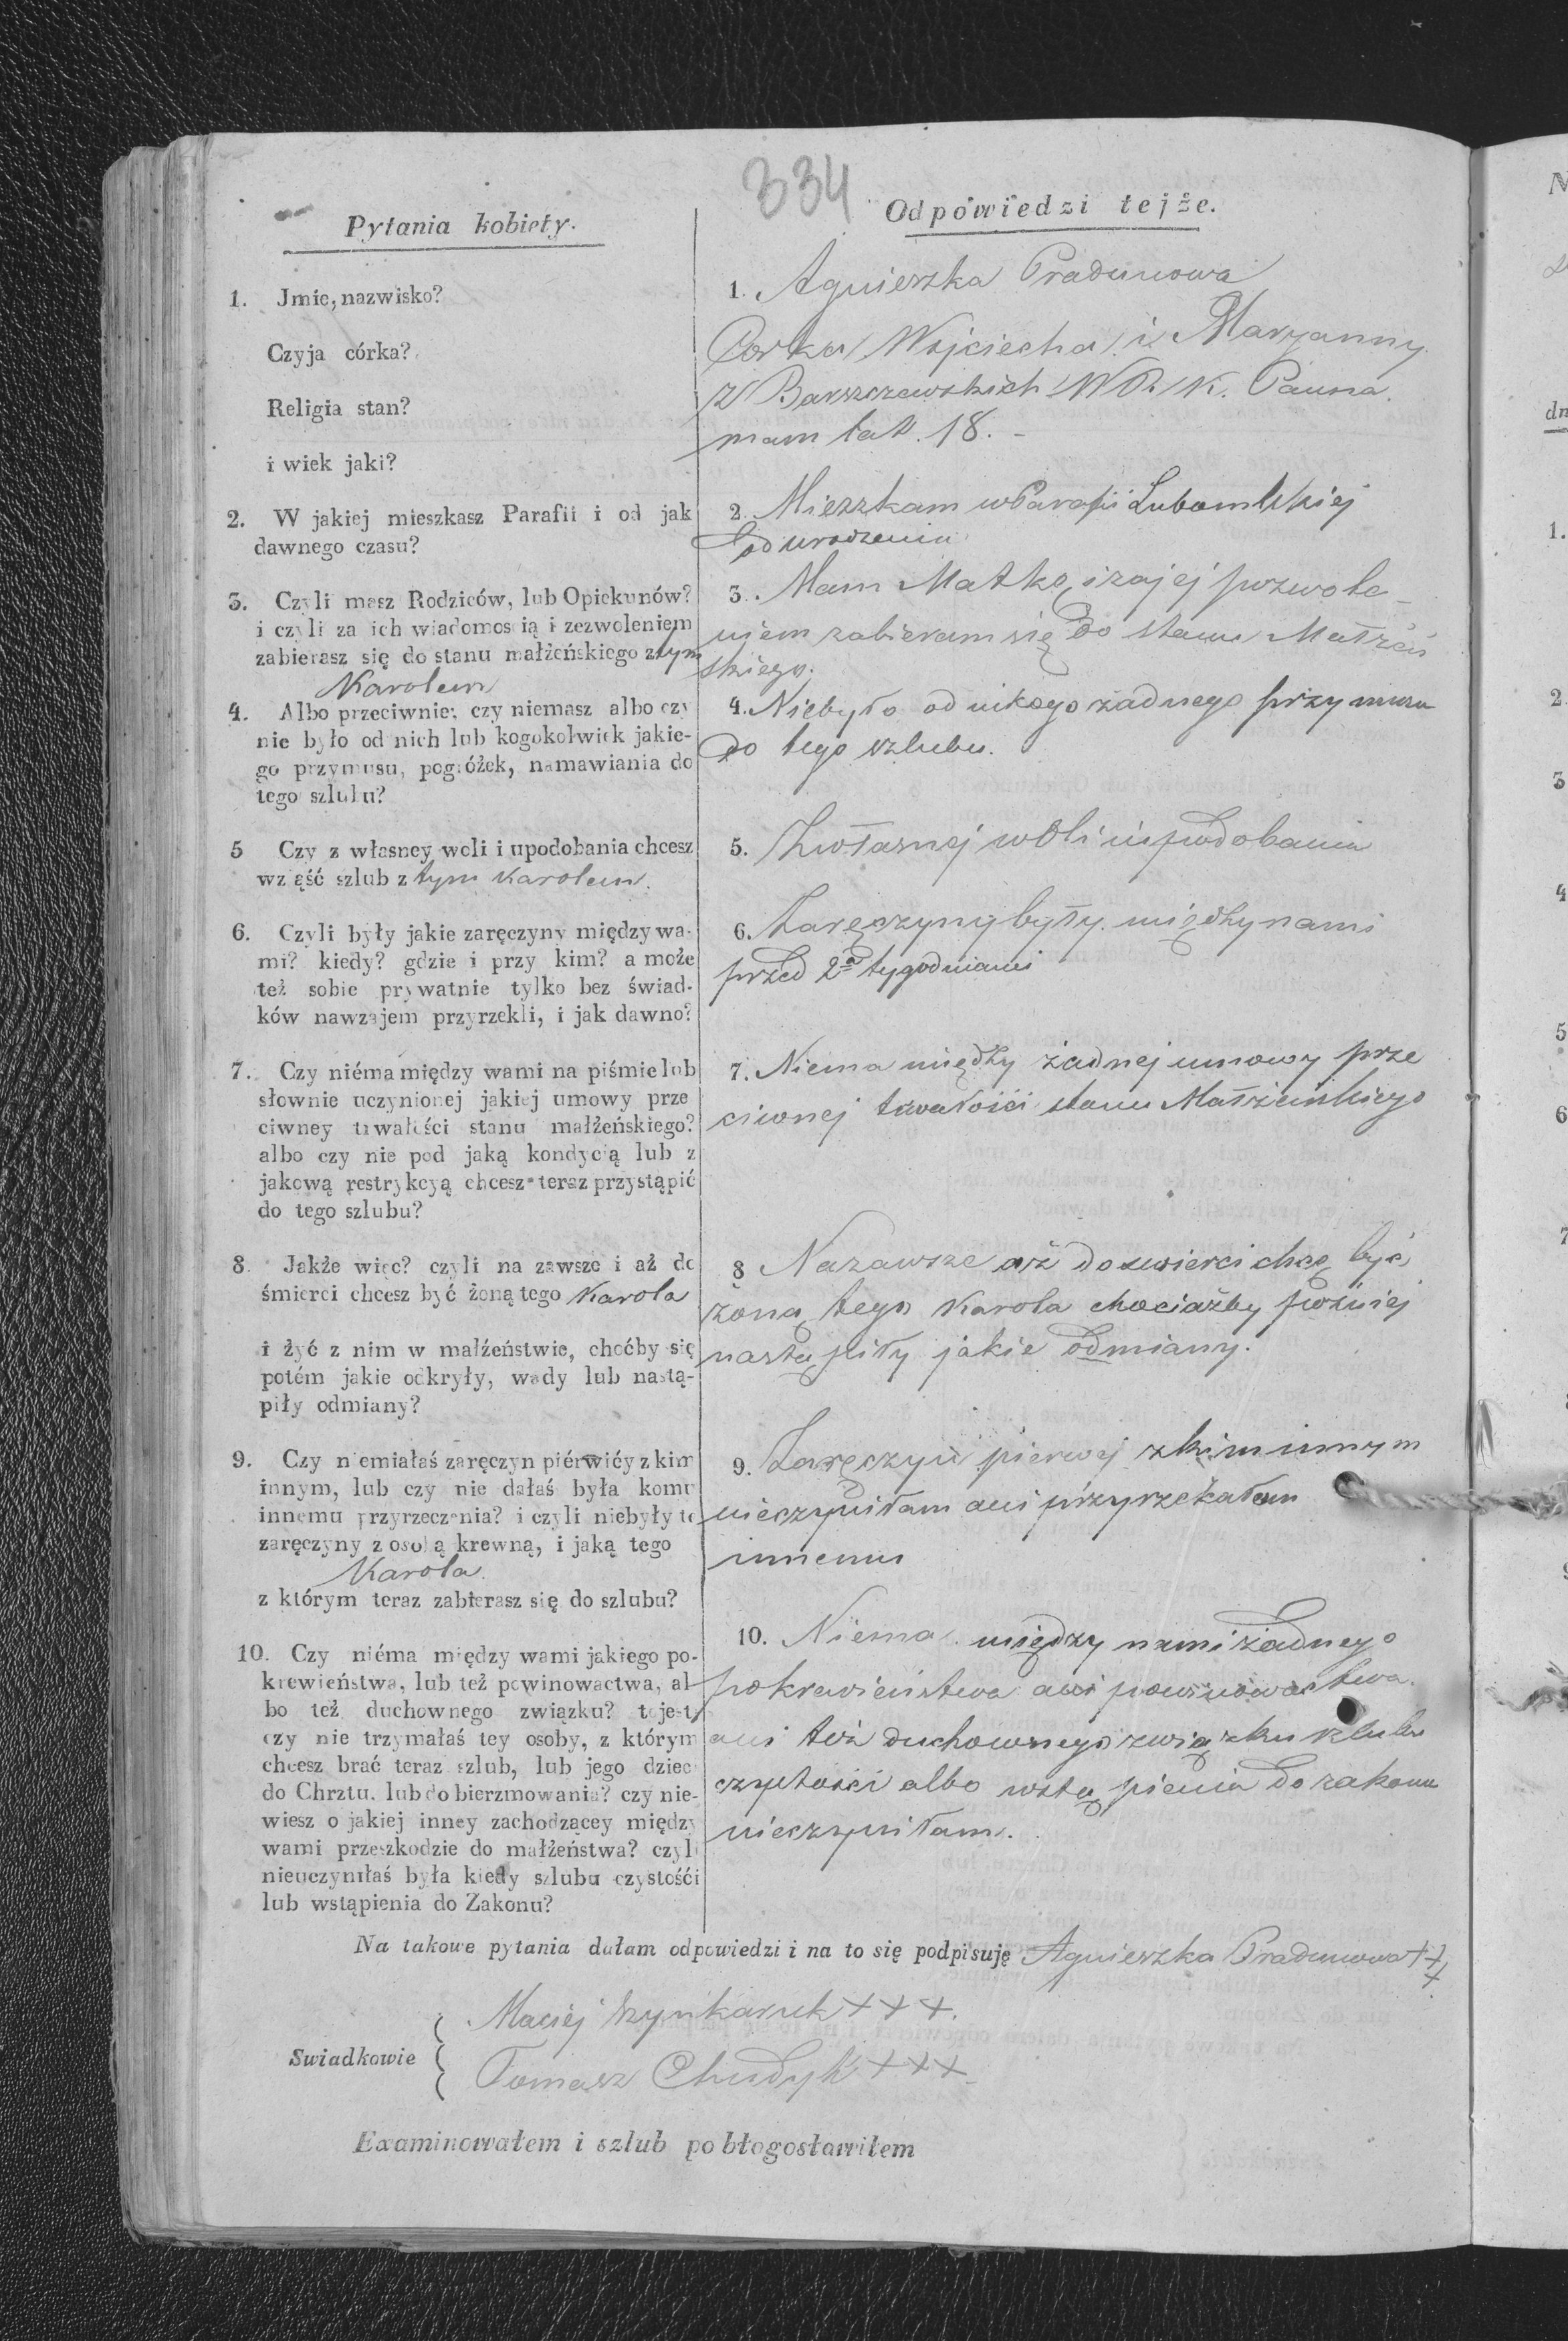 334
Pytania kobiety.
1. Jmie, nazwisko?
Czyja córka?
Religia stan?
i wiek jaki?
2. W jakiej mieszkasz Parafii i od jak
dawnego czasu?
3. Czyli masz Rodziców, lub Opiekunów?
i czyli za ich wiadomością i zezwoleniem
zabierasz się do stanu małżeńskiego z tym
Karolem
4. Albo przeciwnie: czy niemasz albo czy
nie było od nich lub kogokolwiek jakie-
go przymusu, pogróżek, namawiania do
tego szlubu?
5 Czy z własney woli i upodobania chcesz
wziąść szlub z tym Karolem.
6. Czyli były jakie zaręczyny między wa-
mi? kiedy? gdzie i przy kim? a może
też sobie prywatnie tylko bez świad-
ków nawzajem przyrzekli, i jak dawno?
7. Czy niéma między wami na piśmie lub
słownie uczynionej jakiej umowy prze
ciwney trwałości stanu małżeńskiego?
albo czy nie pod jaką kondycią lub z
jakową restrykcyą chcesz teraz przystąpić
do tego szlubu?
8. Jakże więc? czyli na zawsze i aż do
śmierci chcesz być żoną tego Karola
i żyć z nim w małżeństwie, choćby się
potém jakie odkryły, wady lub nastą-
piły odmiany?
9. Czy niemiałaś zaręczyn piérwićy z kim
innym, lub czy nie dałaś była komu
innemu przyrzeczenia? i czyli niebyły te
zaręczyny z osobą krewną, i jaką tego
Karola.
z którym teraz zabierasz się do szlubu?
10. Czy niéma między wami jakiego po-
krewieństwa, lub też powinowactwa, al-
bo też duchownego związku? to jest,
czy nie trzymałaś tey osoby, z którym
chcesz brać teraz szlub, lub jego dzieci
do Chrztu, lub do bierzmowania? czy nie-
wiesz o jakiej inney zachodzącey między
wami przeszkodzie do małżeństwa? czyli
nieuczyniłaś była kiedy szlubu czystośći
lub wstąpienia do Zakonu?
Odpowiedzi tejże.
1. Agnieszka Pradunowa
Corka Wojciecha i Maryanny
z Barszczewskich W R. K. Panna.
mam lat. 18. -
2. Mieszkam w Parafii Lubomlskiej
od urodzenia
3. Mam Matkę i za jej pozwole-
niem zabieram się do stanu Małżeń
skiego.
4. Niebyło od nikogo żadnego przymusu
do tego szlubu.
5. Z własnej woli i upodobania
6. Zaręczyny były między nami
przed 2a tygodniami
7. Niema między żadnej umowy prze
ciwnej trwałości stanu Małżeńskiego
8 Nazawsze aż do smierci chcę być
żoną tego Karola chociażby poźniej
nastąpiły jakie odmiany.
9. Zaręczyn pierwej z kim innym
nieczyniłam ani przyrzekałam
innemu
10. Niema między nami żadnego
pokrewieństwa ani powinowactwa
ani też duchownego związku szlubu
czystości albo wstąpienia do zakonu
nieczyniłam.
Na takowe pytania dałam odpowiedzi i na to się podpisuję Agnieszka Pradunowa +++
Swiadkowie
Maciej Szynkaruk +++.
Tomasz Chudyk +++
Examinowałem i szlub pobłogosławiłem